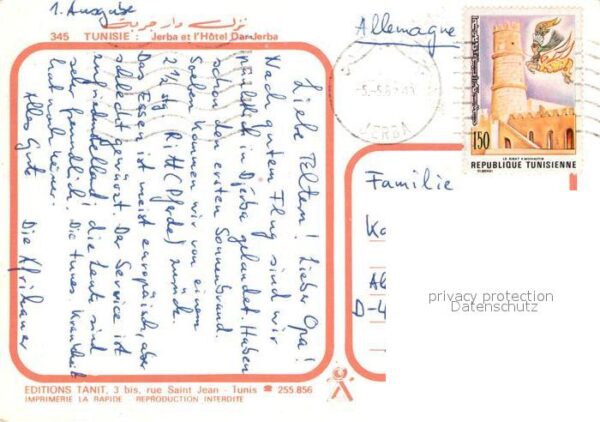 1. Ausgabe
نزل دار جربة
345 TUNISIE : Jerba et l'Hôtel Dar Jerba
Allemagne
5.-5.82
JERBA
150
LE RIBAT
REPUBLIQUE TUNISIENNE
Liebe Eltern! Lieber Opa!
Nach gutem Flug sind wir
pünktlich in Djerba gelandet. Haben
schon den ersten Sonnenbrand.
Soeben kommen wir von einem
2½ stg Ritt (Pferde) zurück.
Das Essen ist meist europäisch, aber
schlecht gewürzt. Der Service ist
zufriedenstellend! die Leute sind
sehr freundlich. Die tunes. Krankheit
hat noch keiner.
Alles Gute
Die Afrikaner
Familie
K
Al
D-4
privacy protection
Datenschutz
EDITIONS TANIT, 3 bis, rue Saint Jean - Tunis ☎ 255.856
IMPRIMERIE LA RAPIDE REPRODUCTION INTERDITE